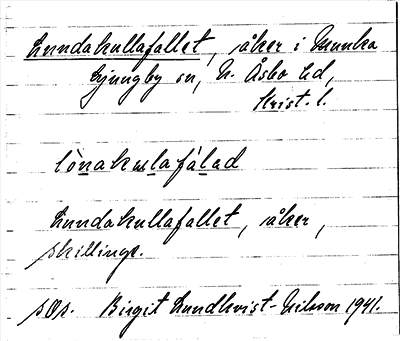 Lundakullafallet, åker i Munka
Ljungby sn, N. Åsbo hd,
Krist. l.
lònakulafálad
Lundakullafallet, åker,
skillings.
sOs. Birgit Lundkvist-Nilsson 1941.